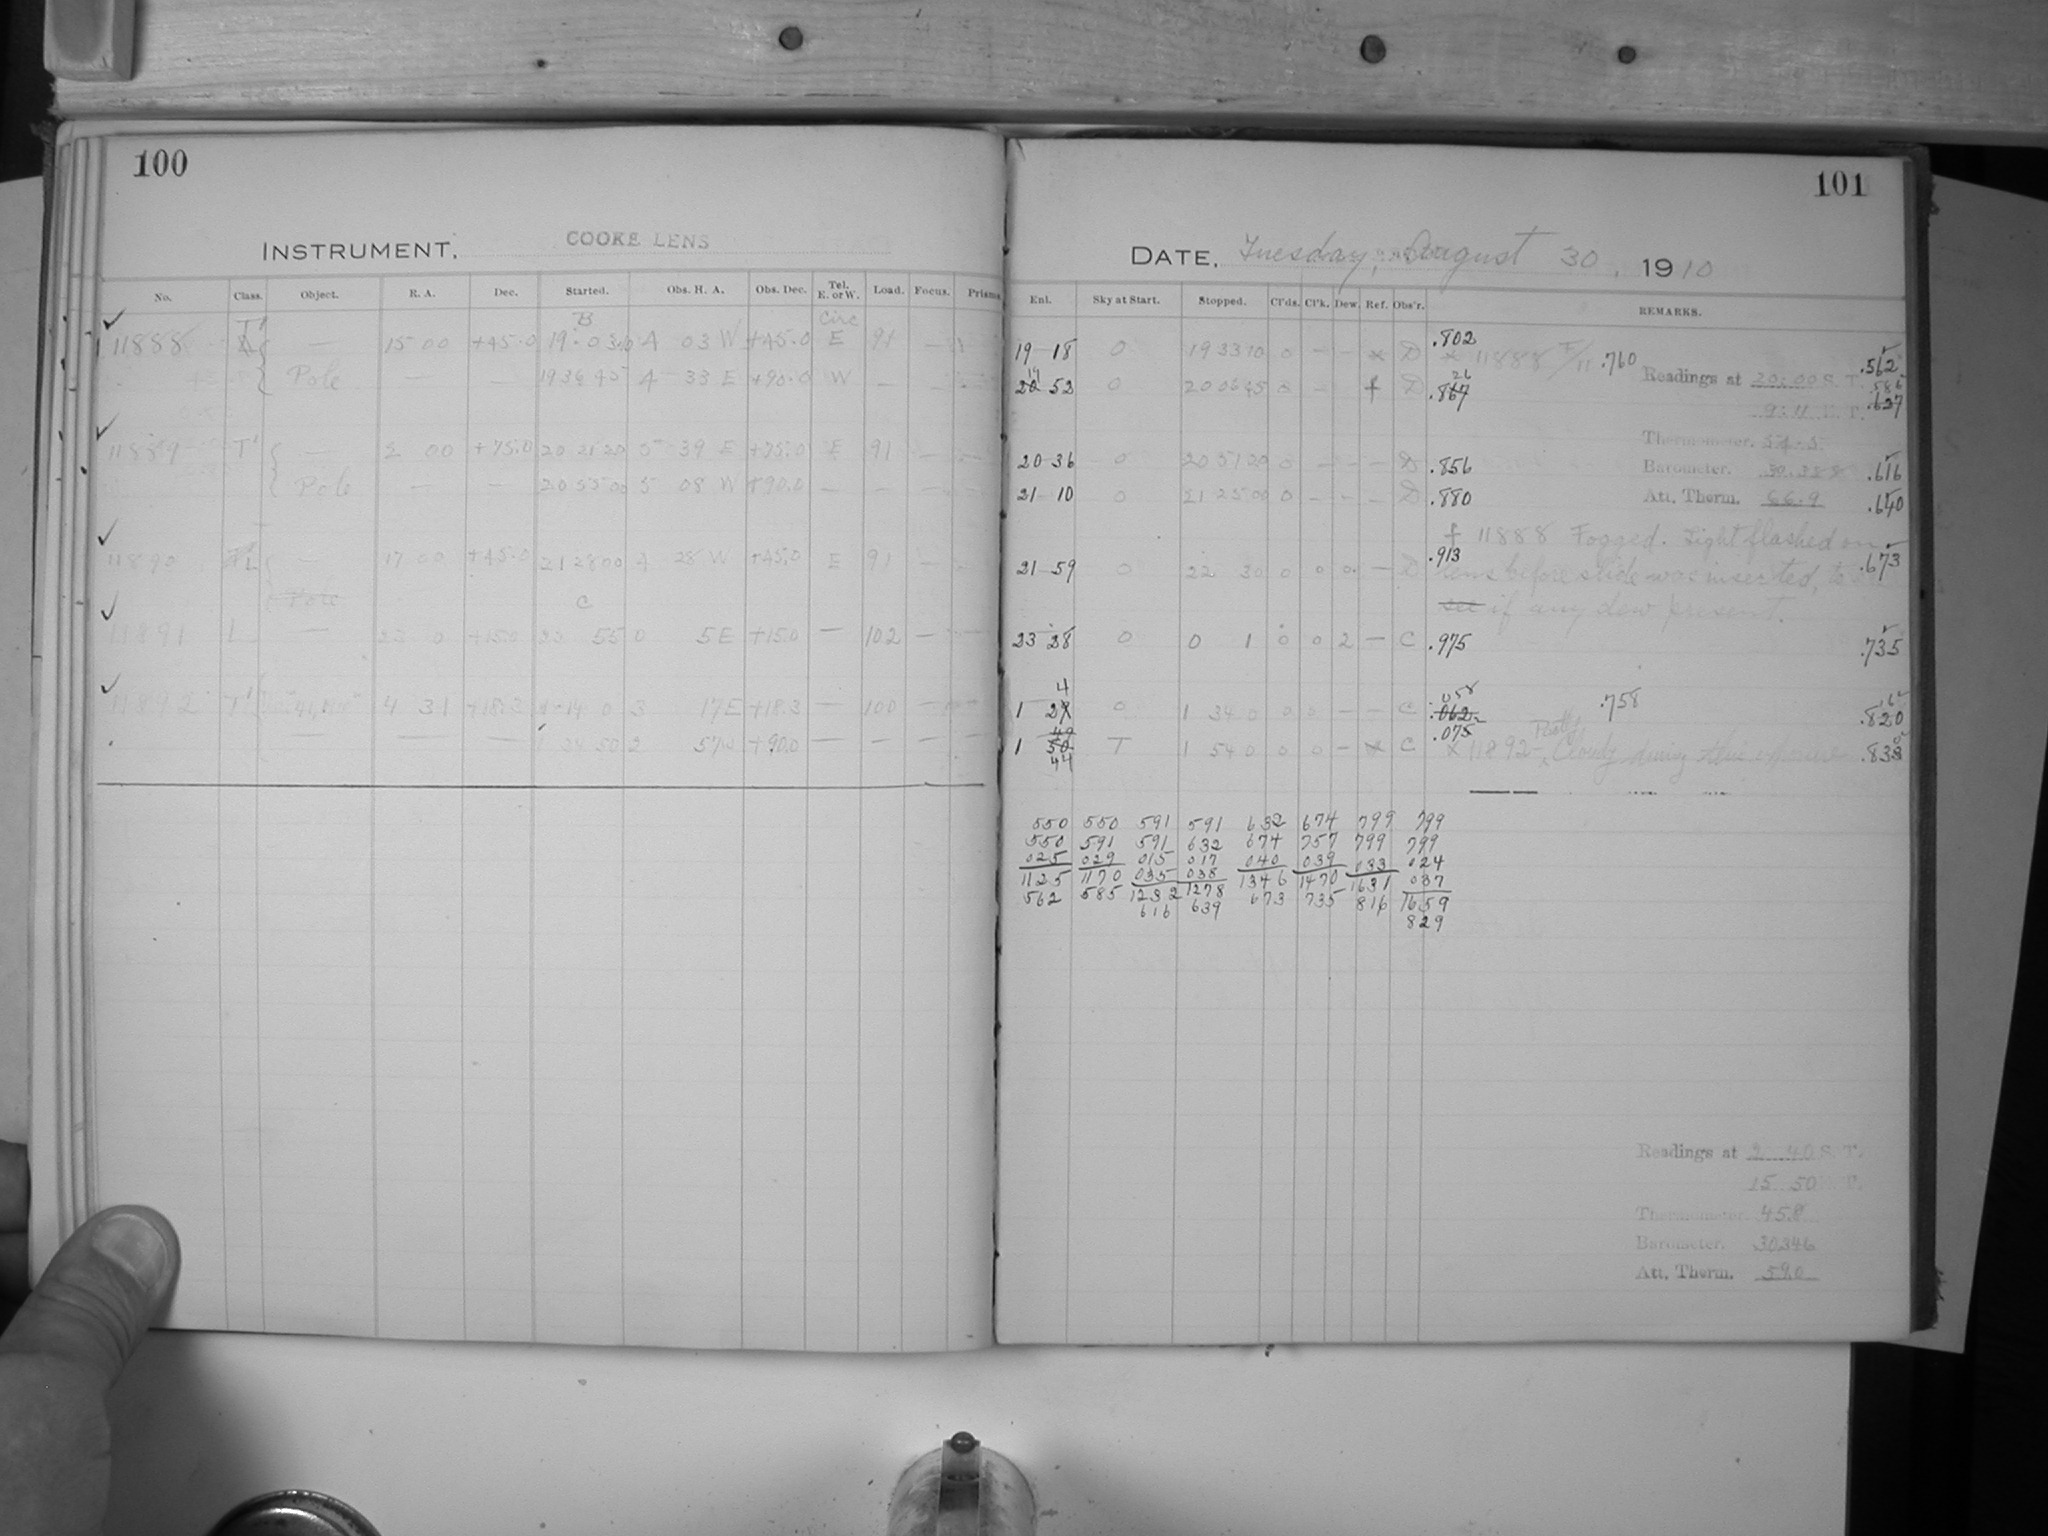 100
INSTRUMENT. COOKE LENS
No. Class. Object. R. A. Dec. Started. Obs. H. A. Obs. Dec. Tel. E. or W. Load. Focus. Prisms
B Circ
11888 T' — 15 00 +45.0 19 03 W +45.0 E 91 —
Pole — — 19 36 45 33 E +90.0 W — —
11889 T' — 2 00 +75.0 20 21 20 5 39 E +75.0 E 91 —
Pole — — 20 55 00 5 08 W +90.0 — — —
11890 L — 17 00 +45.0 21 28 00 28 W +45.0 E 91 —
Pole C
11891 L — 23 0 +15.0 23 55 0 5 E +15.0 — 102 — —
11892 T' 4 31 +18.3 14 0 3 17 E +18.3 — 100 —
— — — 50 2 57 +90.0 — — — —
101
DATE. Tuesday, August 30, 1910
Enl. Sky at Start. Stopped. Cl'ds. Cl'k. Dew. Ref. Obs'r. REMARKS.
19 18 0 19 33 10 0 — — x D .802 x 11888 F/11 .760 .562
Readings at 20:00 S. T. .586
20 52 0 20 06 45 0 — f D .867 .627
9:11 T.
Thermometer. 54.5
20 36 0 20 51 20 0 — — — D .856 Barometer. 30.388 .616
21 10 0 21 25 00 0 — — — D .880 Att. Therm. 66.9 .640
f 11888 Fogged. Light flashed on
21 59 0 22 30 0 0 0. — D .913 lens before slide was inserted, to .673
see if any dew present.
23 28 0 0 1 0 0 2 — C .975 .735
4
1 0 1 34 0 0 0 — — C .062 .058 .758 .820
1 50 T 1 54 0 0 0 — x C .075 x 11892 — Partly Cloudy during this exposure .838
49
44
550 550 591 591 632 674 799 799
550 591 591 632 674 757 799 799
025 029 015 017 040 039 033 024
1125 1170 035 038 1346 1470 1631 037
562 585 1232 1278 673 735 816 1659
616 639 829
Readings at 2 40 S. T.
15 50 T.
Thermometer. 45.8
Barometer. 30.346
Att. Therm. 59.0